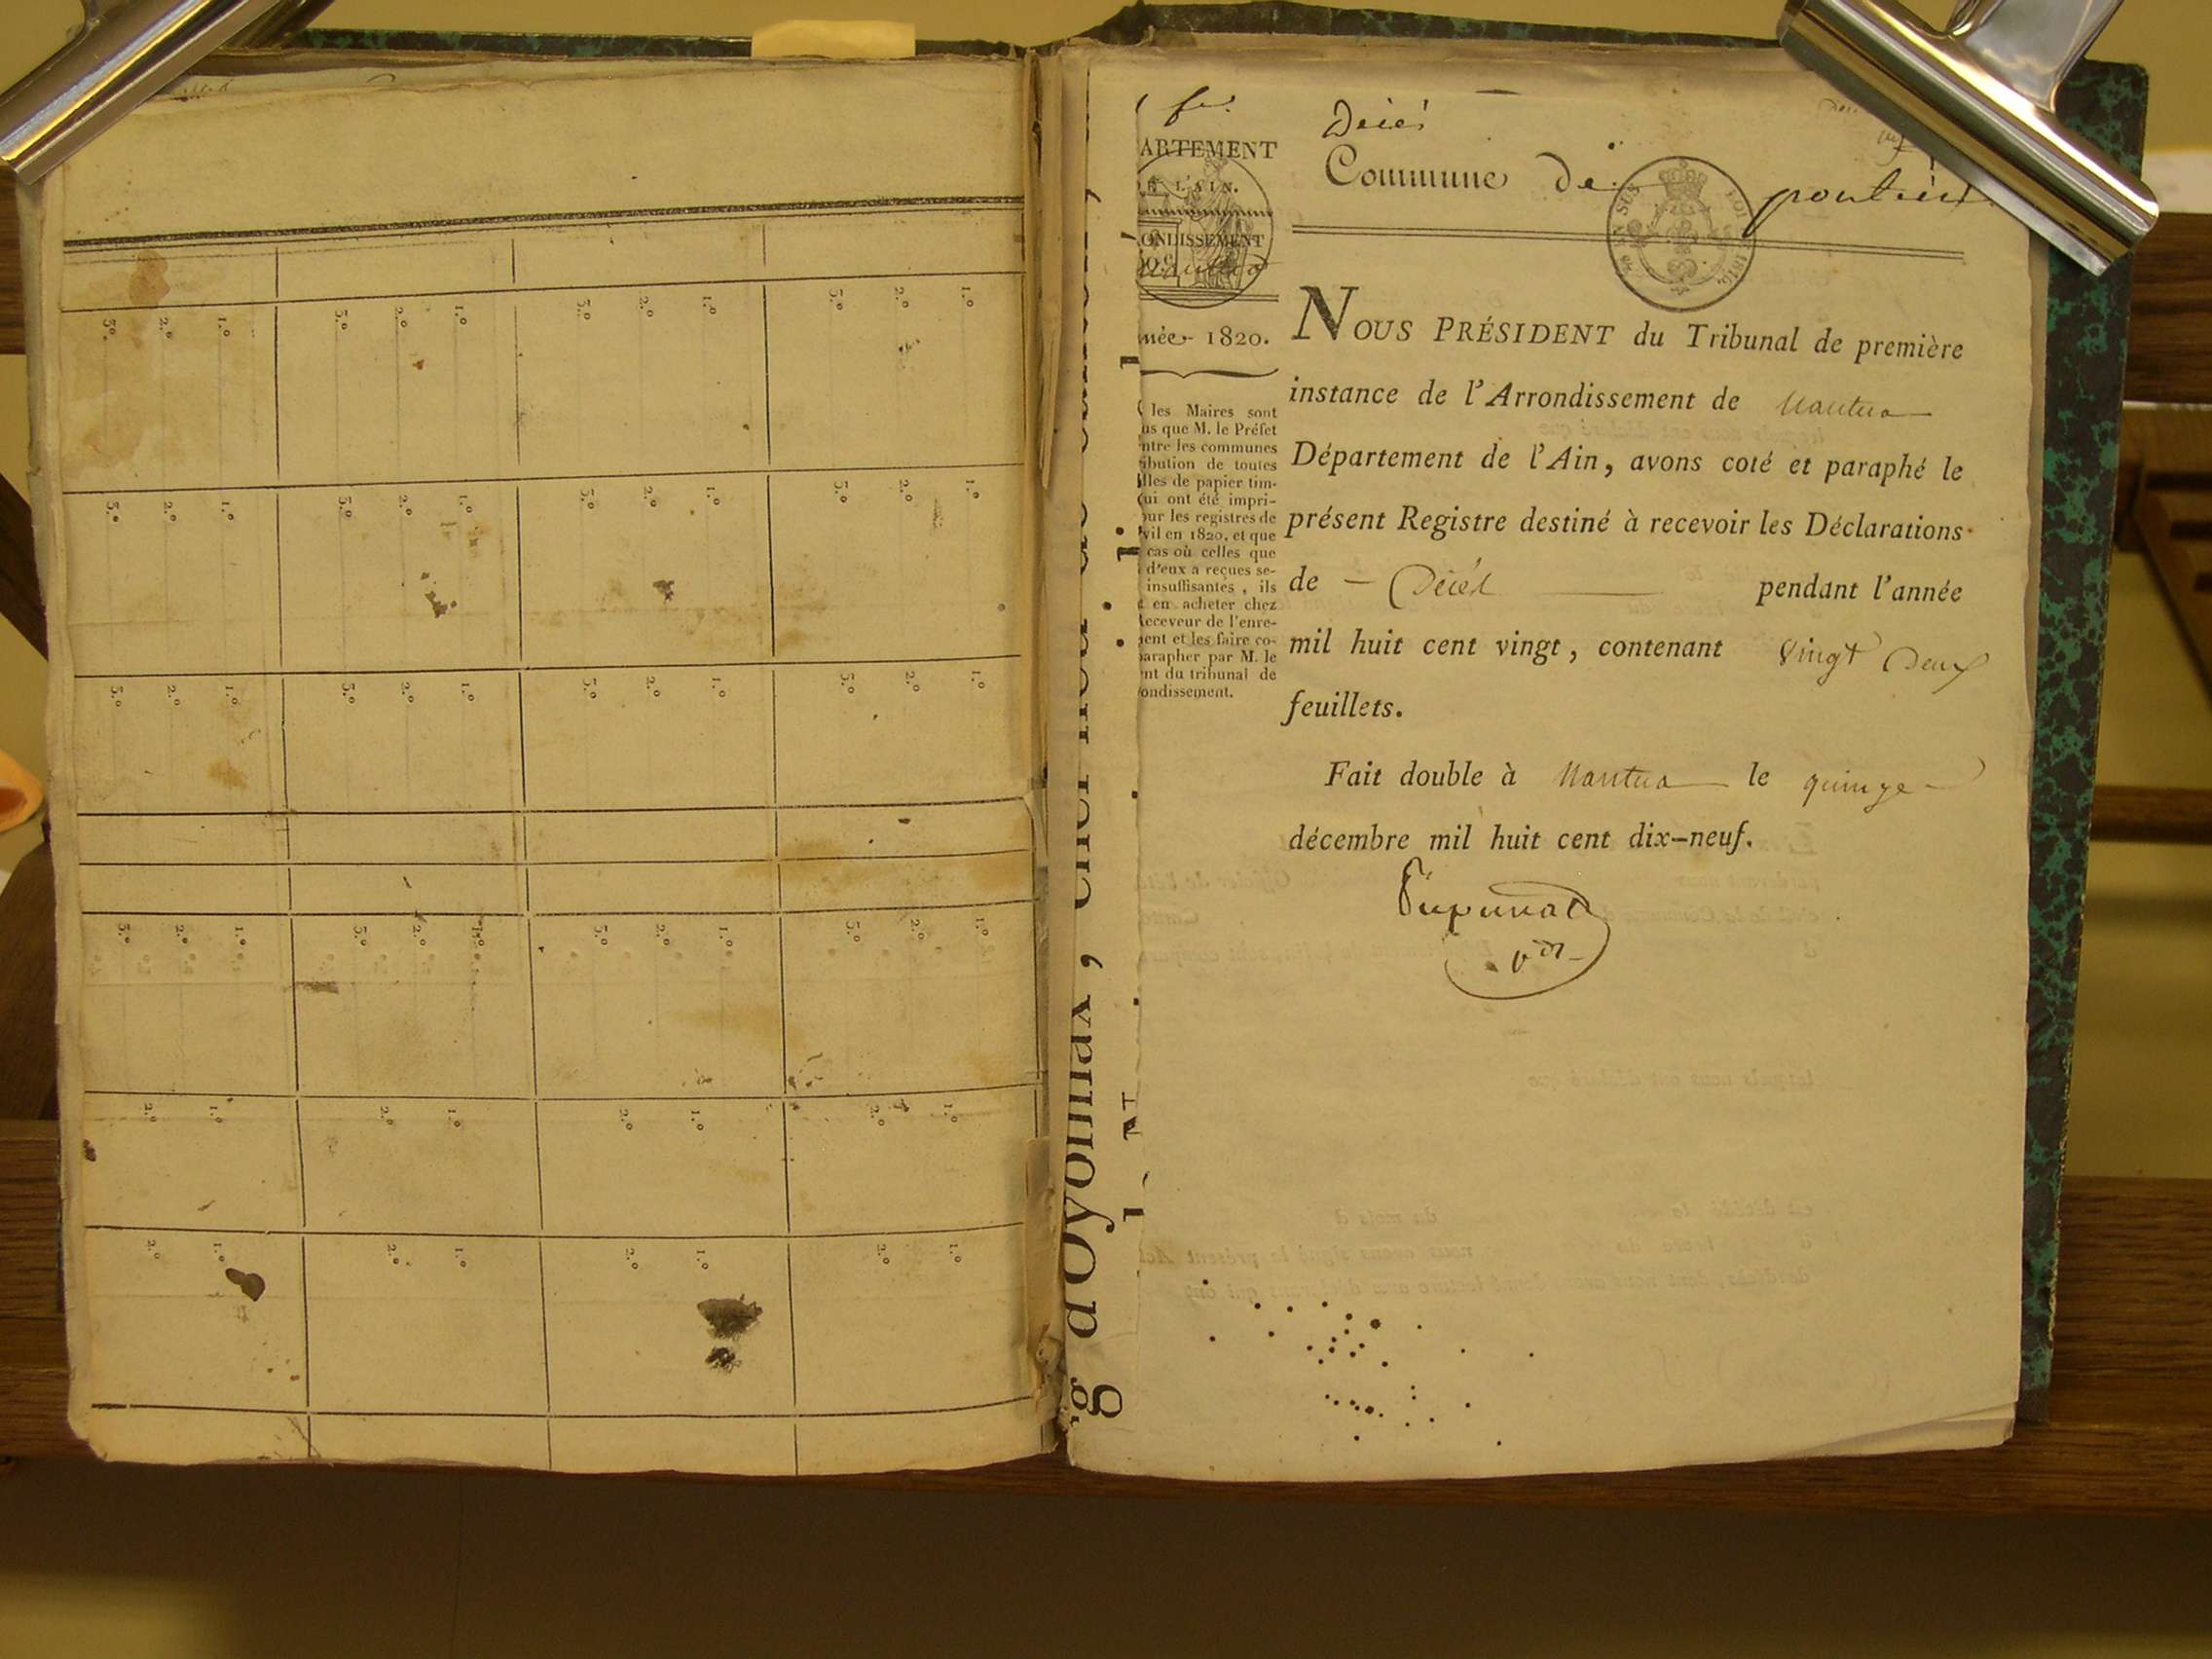 5.º 2.º 1.º 5.º 2.º 1.º 5.º 2.º 1.º 5.º 2.º 1.º
5.º 2.º 1.º 5.º 2.º 1.º 5.º 2.º 1.º 5.º 2.º 1.º
5.º 2.º 1.º 5.º 2.º 1.º 5.º 2.º 1.º 5.º 2.º 1.º
5.º 2.º 1.º 5.º 2.º 1.º 5.º 2.º 1.º 5.º 2.º 1.º
2.º 1.º 2.º 1.º 2.º 1.º 2.º 1.º
2.º 1.º 2.º 1.º 2.º 1.º 2.º 1.º
g d'Oyonnax, chef-lieu de canton,
ARTEMENT
DE L'AIN.
ONDISSEMENT
Nantua
née 1820.
les Maires sont
us que M. le Préfet
ntre les communes
ibution de toutes
lles de papier tim-
qui ont été impri-
our les registres de
vil en 1820, et que
cas où celles que
d'eux a reçues se-
insuffisantes, ils
t en acheter chez
Receveur de l'enre-
ment et les faire co-
parapher par M. le
nt du tribunal de
ondissement.
Décés
Commune de pouliat
NOUS PRÉSIDENT du Tribunal de première
instance de l'Arrondissement de Nantua
Département de l'Ain, avons coté et paraphé le
présent Registre destiné à recevoir les Déclarations
de Décés pendant l'année
mil huit cent vingt, contenant vingt Deux
feuillets.
Fait double à Nantua le quinze
décembre mil huit cent dix-neuf.